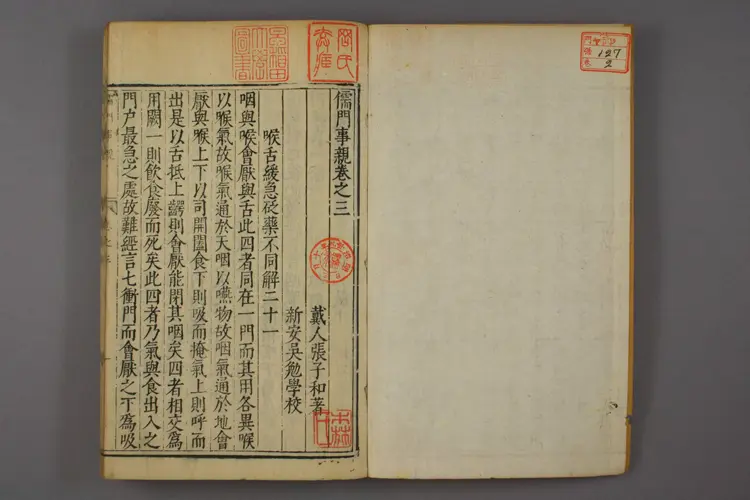 儒門事親卷之三
戴人張子和著
新安吳勉學校
喉舌緩急砭藥不同解二十一
咽與喉會厭與舌此四者同在一門而其用各異喉
以喉氣故喉氣通於天咽以嚥物故咽氣通於地會
厭與喉上下以司開闔食下則吸而掩氣上則呼而
出是以舌抵上齶則會厭能閉其咽矣四者相交為
用闕一則飲食廢而死矣此四者乃氣與食出入之
門戶最急之處故難經言七衝門而會厭之下為吸
早稻田大學圖書
127
2